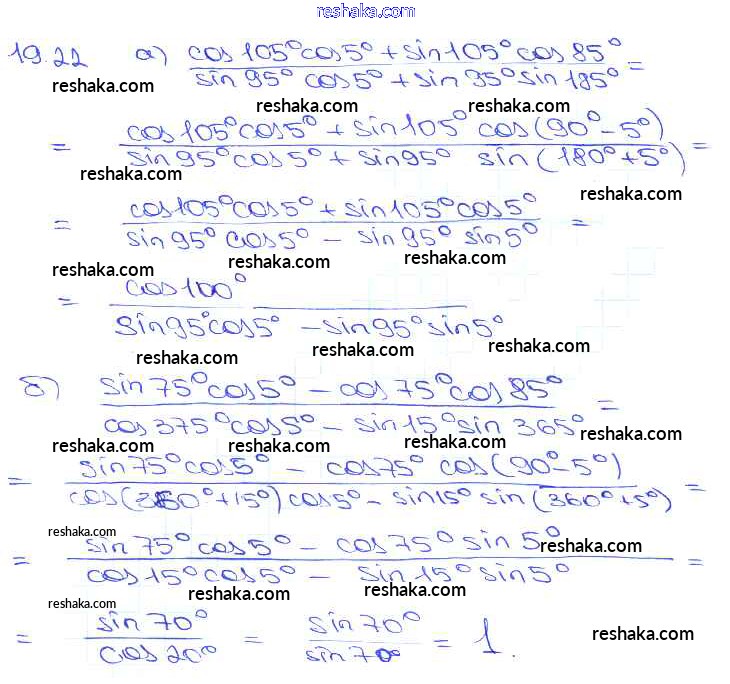 reshaka.com
19.22 а) cos 105° cos 5° + sin 105° cos 85°
sin 95° cos 5° + sin 95° sin 185° =
reshaka.com reshaka.com reshaka.com
= cos 105° cos 5° + sin 105° cos (90° - 5°)
sin 95° cos 5° + sin 95° sin (180° + 5°) =
reshaka.com reshaka.com reshaka.com reshaka.com
= cos 105° cos 5° + sin 105° cos 5° =
sin 95° cos 5° - sin 95° sin 5°
reshaka.com reshaka.com reshaka.com reshaka.com
= cos 100°
sin 95° cos 5° - sin 95° sin 5°
reshaka.com reshaka.com reshaka.com
б) sin 75° cos 5° - cos 75° cos 85° =
cos 375° cos 5° - sin 15° sin 365°
reshaka.com reshaka.com reshaka.com reshaka.com
= sin 75° cos 5° - cos 75° cos (90° - 5°) =
cos (360° + 15°) cos 5° - sin 15° sin (360° + 5°)
reshaka.com reshaka.com reshaka.com reshaka.com
= sin 75° cos 5° - cos 75° sin 5° =
cos 15° cos 5° - sin 15° sin 5°
reshaka.com reshaka.com reshaka.com
= sin 70° = sin 70° = 1.
cos 20° sin 70°
reshaka.com reshaka.com reshaka.com